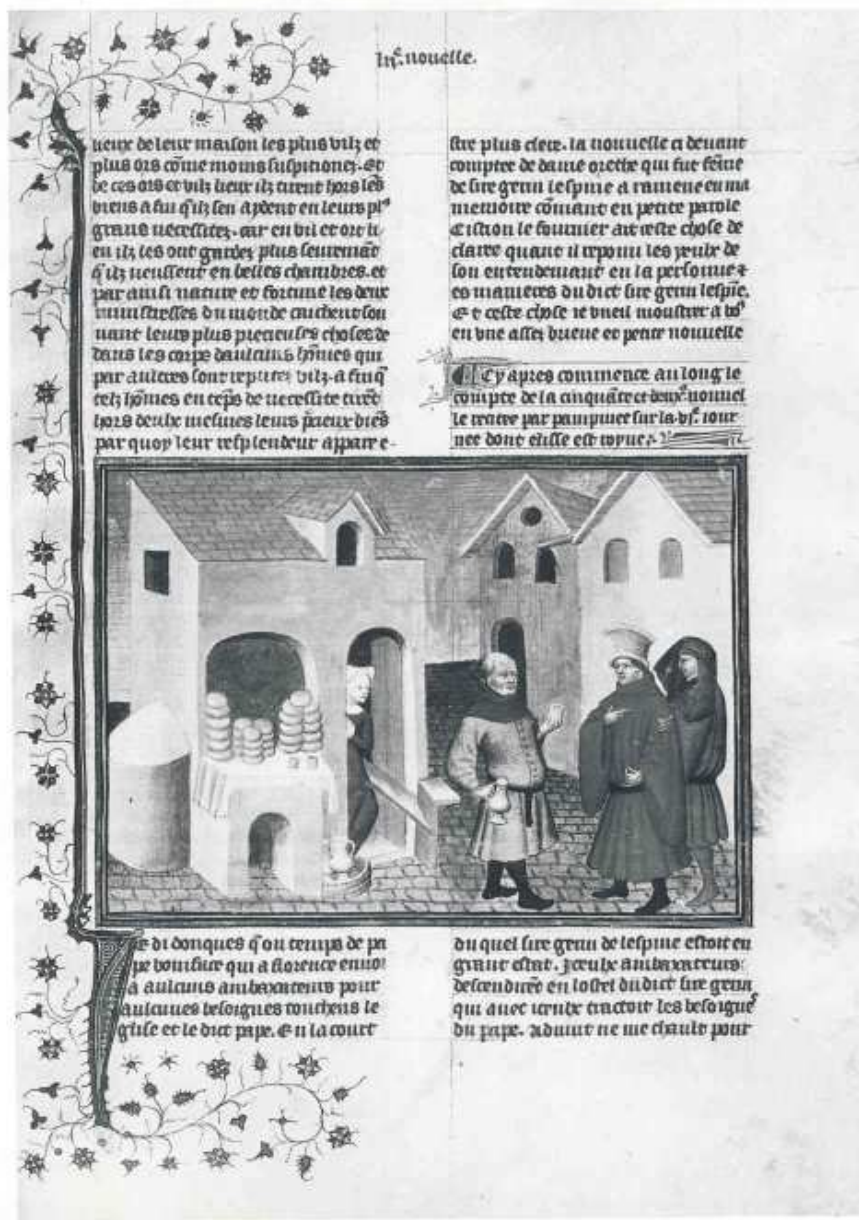 nouelle.
lieux de leur maison les plus vilz et
plus ors cõme moins suspitionez. Et
de ces ors et vilz lieux ilz tirent hors les
biens a fin q̃ ilz sen aydent en leurs plꝰ
grans necessitez. car en vil et ort li
eu ilz les ont gardez plus seuremãt
q̃ ilz neussent en belles chambres. et
par ainsi nature et fortune les deux
ministresses du monde cachent sou
uant leurs plus precieuses choses de
dans les corps daulcuns hõmes qui
par aultres sont reputez vilz. a fin q̃
telz hõmes en tẽps de necessite tirẽt
hors deulx mesmes leurs p̃cieux biẽs
par quoy leur resplendeur appare e
stre plus clere. la nouuelle ci deuant
comptee de dame orethe qui fut fẽme
de sire geruı lespine a ramene en ma
memoire cõmant en petite parole
Cistion le fournier ait ceste chose de
claire quant il repouı les yeulx de
son entendemant en la personne ⁊
es manieres du dict sire geruı lespıẽ.
Et ceste chose ie vueil monstrer a voꝰ
en vne assez brieue et petite nouuelle
Cy apres commence au long le
compte de la cinquãte et deuxᵉ nouuel
le traitee par pampinee sur la vjᵉ. iour
nee dont elisse est royne.
Je di donques q̃ ou temps de pa
pe boniface qui a florence enuoı
a aulcuns ambaxateurs pour
aulcunes besoignes touchens le
glise et le dict pape. En la court
du quel sire geruı de lespine estoit en
grant estat. Jceulx ambaxateurs
descendirẽt en lostel du dict sire geruı
qui auec iceulx traictoit les besoigneˢ
du pape. aduint ne me chault pour